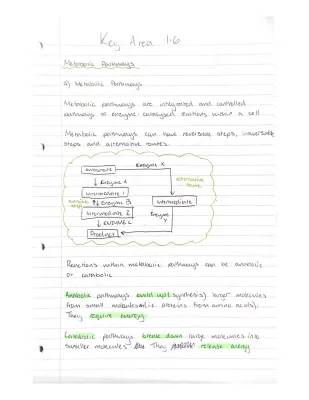 Key Area 1.6
Metabolic Pathways
a) Metabolic Pathways
Metabolic pathways are integrated and controlled
pathways of enzyme-catalysed reactions within a cell
Metabolic pathways can have reversible steps, irreversible
steps and alternative routes.
Enzyme X
Substrate
alternative
route
↓ Enzyme A
Intermediate 1
Intermediate
⇅ Enzyme B
Intermediate 2
Enzyme
Y
↓ Enzyme C
Product
Reactions within metabolic pathways can be anabolic
or catabolic
Anabolic pathways build up (synthesis) larger molecules
from small molecules (ie proteins from amino acids).
They require energy
Catabolic pathways break down large molecules into
smaller molecules. They release energy